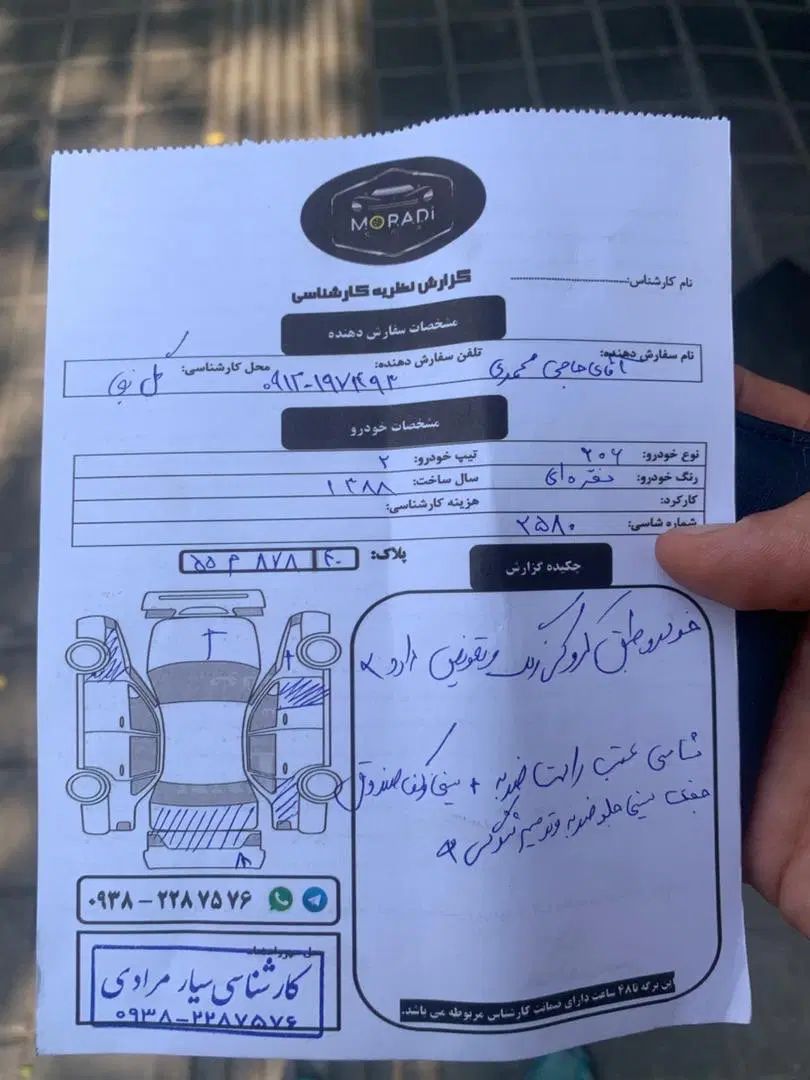 MORADI
گزارش نظریه کارشناسی
نام کارشناس:
مشخصات سفارش دهنده
نام سفارش دهنده: آقای حاجی محمدی تلفن سفارش دهنده: محل کارشناسی:
مشخصات خودرو
نوع خودرو: ۲۰۶ تیپ خودرو: ۲
رنگ خودرو: نقره‌ای سال ساخت: ۱۳۸۸
کارکرد: هزینه کارشناسی:
شماره شاسی: ۲۵۸۰
پلاک: ۵۵ م ۸۷۸ ۴۰
چکیده گزارش
خودرو طبق کروکی رنگ و تعویض دارد
شاسی عقب راست ضربه + سینی کف صندوق
سینی جلو ضربه و ترمیم
۰۹۳۸ – ۲۲۸ ۷۵ ۷۶
کارشناسی سیار مرادی
۰۹۳۸-۲۲۸۷۵۷۶
این برگه تا ۴۸ ساعت دارای ضمانت کارشناس مربوطه می باشد.